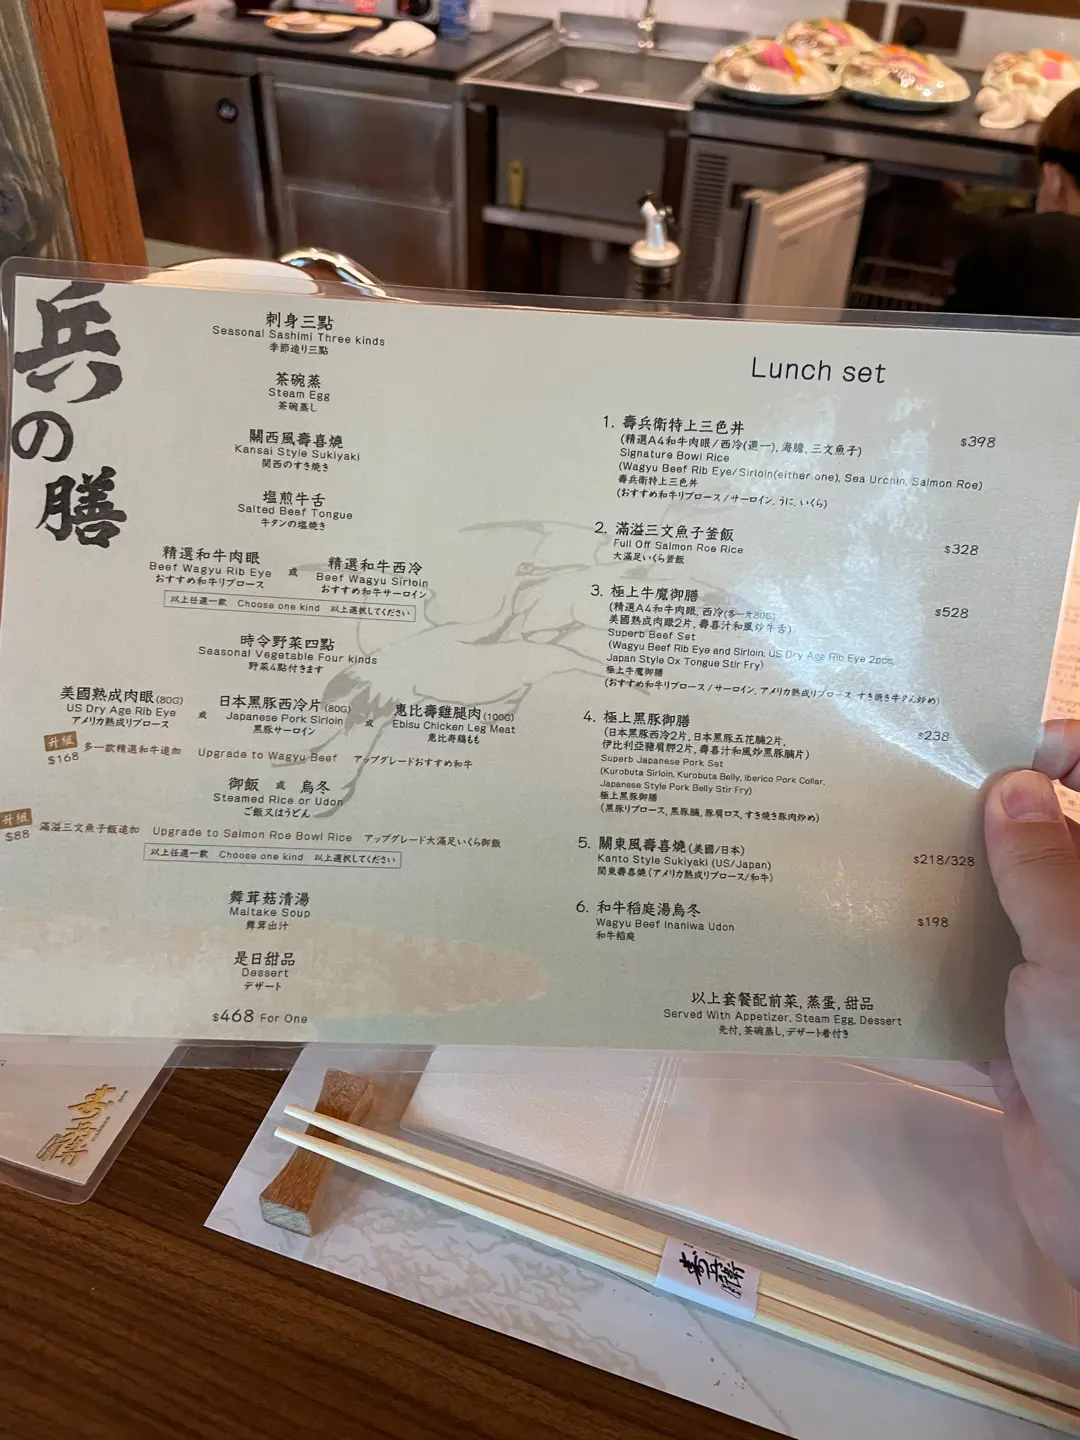 兵の膳
刺身三點
Seasonal Sashimi Three kinds
季節造り三點
茶碗蒸
Steam Egg
茶碗蒸し
關西風壽喜燒
Kansai Style Sukiyaki
関西のすき焼き
塩煎牛舌
Salted Beef Tongue
牛タンの塩焼き
精選和牛肉眼 或 精選和牛西冷
Beef Wagyu Rib Eye Beef Wagyu Sirloin
おすすめ和牛リブロース おすすめ和牛サーロイン
以上任選一款 Choose one kind 以上選択してください
時令野菜四點
Seasonal Vegetable Four kinds
野菜4點付きます
美國熟成肉眼(80G) 或 日本黑豚西冷片(80G) 或 恵比壽雞腿肉(100G)
US Dry Age Rib Eye Japanese Pork Sirloin Ebisu Chicken Leg Meat
アメリカ熟成リブロース 黒豚サーロイン 恵比寿鶏もも
升級 $168 多一款精選和牛追加 Upgrade to Wagyu Beef アップグレードおすすめ和牛
御飯 或 烏冬
Steamed Rice or Udon
ご飯又はうどん
升級 $88 滿溢三文魚子飯追加 Upgrade to Salmon Roe Bowl Rice アップグレード大滿足いくら御飯
以上任選一款 Choose one kind 以上選択してください
舞茸菇清湯
Maitake Soup
舞茸出汁
是日甜品
Dessert
デザート
$468 For One
Lunch set
1. 壽兵衛特上三色丼 $398
(精選A4和牛肉眼/西冷(選一), 海膽, 三文魚子)
Signature Bowl Rice
(Wagyu Beef Rib Eye/Sirloin(either one), Sea Urchin, Salmon Roe)
壽兵衛特上三色丼
(おすすめ和牛リブロース/サーロイン, うに, いくら)
2. 滿溢三文魚子釜飯 $328
Full Off Salmon Roe Rice
大滿足いくら釜飯
3. 極上牛魔御膳 $528
(精選A4和牛肉眼, 西冷(各一片80G)
美國熟成肉眼2片, 壽喜汁和風炒牛舌)
Superb Beef Set
(Wagyu Beef Rib Eye and Sirloin, US Dry Age Rib Eye 2pcs,
Japan Style Ox Tongue Stir Fry)
極上牛魔御膳
(おすすめ和牛リブロース/サーロイン, アメリカ熟成リブロース すき焼き牛タん炒め)
4. 極上黑豚御膳 $238
(日本黑豚西冷2片, 日本黑豚五花腩2片,
伊比利亞豬肩胛2片, 壽喜汁和風炒黑豚腩片)
Superb Japanese Pork Set
(Kurobuta Sirloin, Kurobuta Belly, Iberico Pork Collar,
Japanese Style Pork Belly Stir Fry)
極上黒豚御膳
(黒豚リブロース, 黒豚腩, 豚肩ロス, すき焼き豚肉炒め)
5. 關東風壽喜燒(美國/日本) $218/328
Kanto Style Sukiyaki (US/Japan)
関東壽喜燒(アメリカ熟成リブロース/和牛)
6. 和牛稻庭湯烏冬 $198
Wagyu Beef Inaniwa Udon
和牛稻庭
以上套餐配前菜, 蒸蛋, 甜品
Served With Appetizer, Steam Egg, Dessert
先付, 茶碗蒸し, デザート着付き
寿兵衛
寿兵衛